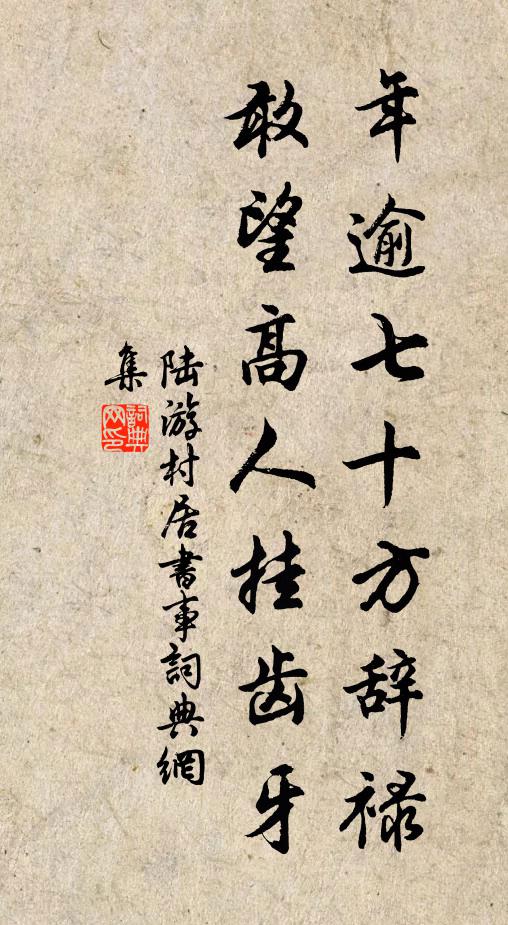 年逾七十方辞禄
敢望高人挂齿牙
陆游村居書事詞典網
集
詞典网印